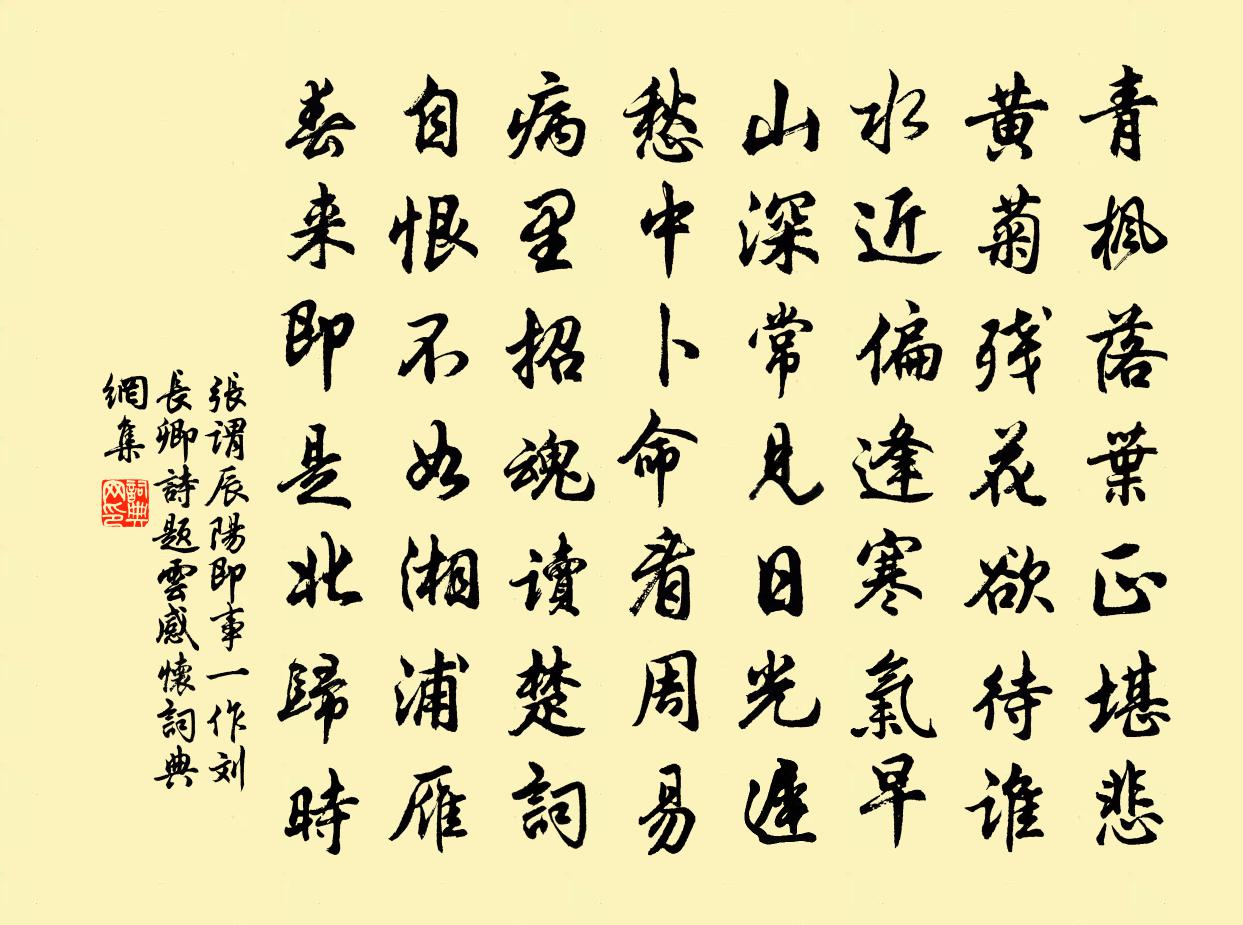 青枫落葉正堪悲
黄菊残花欲待谁
水近偏逢寒氣早
山深常見日光遲
愁中卜命看周易
病里招魂讀楚詞
自恨不如湘浦雁
春来即是北歸時
張谓辰陽即事一作刘
長卿詩題雲感懷詞典
網集
詞典
网印